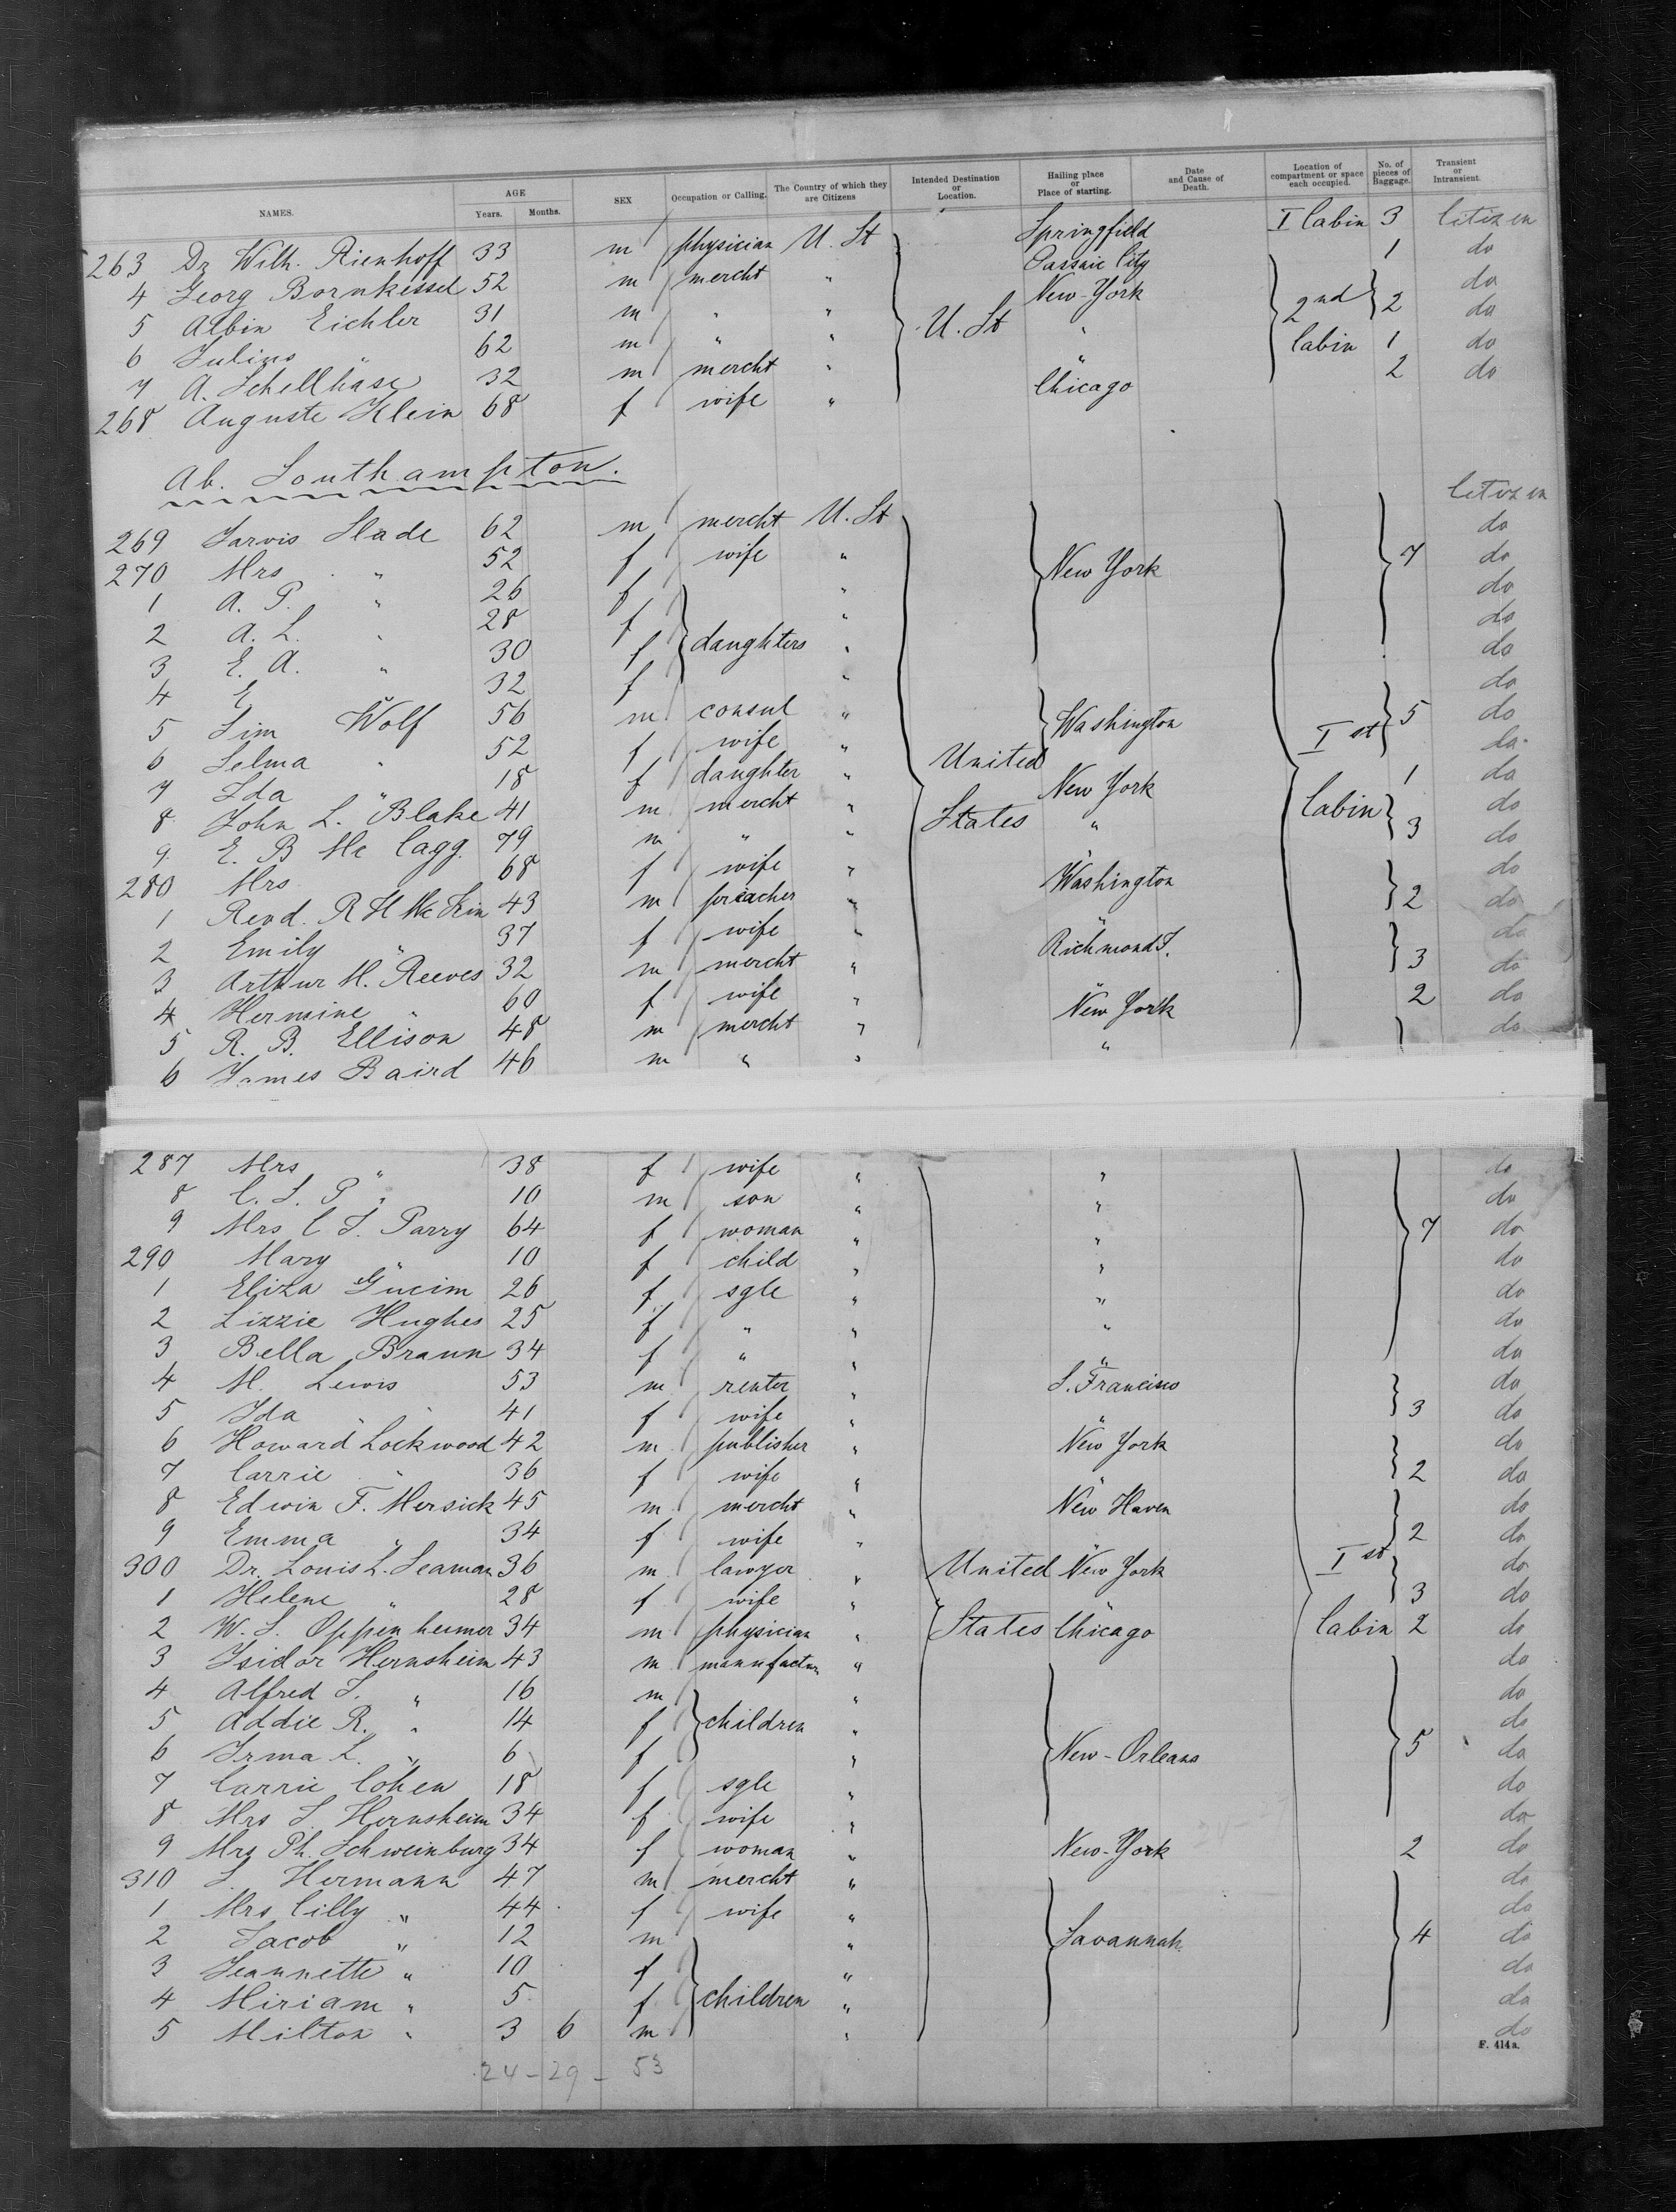 NAMES. AGE Years. Months. SEX Occupation or Calling. The Country of which they are Citizens Intended Destination or Location. Hailing place or Place of starting. Date and Cause of Death. Location of compartment or space each occupied. No. of pieces of Baggage. Transient or Intransient.
263 Dr Wilh. Rienhoff 33 m physician U. St Springfield I Cabin 3 Citizen
4 Georg Bornkessel 52 m mercht " Passaic City 1 do
5 Albin Eichler 31 m " " New-York 2nd 2 do
6 Julius " 62 m " " U. St " do
7 A. Schellhase 32 m mercht " " Cabin 1 do
268 Auguste Klein 68 f wife " Chicago 2 do
Ab. Southampton.
269 Jarvis Slade 62 m mercht U. St Citizen
270 Mrs " 52 f wife " New York 7 do
1 A. P. " 26 f " do
2 A. L. " 28 f daughters " do
3 E. A. " 30 f " do
4 E " 32 f " do
5 Sim Wolf 56 m consul " Washington 5 do
6 Selma " 52 f wife " United Ist do
7 Ida " 18 f daughter " do
8 John L. Blake 41 m mercht " States New York Cabin 1 do
9 E. B Mc Cagg. 79 m " " " 3 do
280 Mrs " 68 f wife " " do
1 Revd. R H Mc Kim 43 m preacher " Washington 2 do
2 Emily " 37 f wife " " do
3 Arthur M. Reeves 32 m mercht " Richmond 3 do
4 Hermine " 60 f wife " " do
5 R. B. Ellison 48 m mercht " New York 2 do
6 James Baird 46 m " " " do
287 Mrs " 38 f wife " " do
8 C. L. P " 10 m son " " do
9 Mrs C T. Parry 64 f woman " " 7 do
290 Mary " 10 f child " " do
1 Eliza 26 f sgle " " do
2 Lizzie Hughes 25 f " " " do
3 Bella Braun 34 f " " " do
4 M. Lewis 53 m renter " S. Francisco do
5 Ida " 41 f wife " " 3 do
6 Howard Lockwood 42 m publisher " New York do
7 Carrie " 36 f wife " " 2 do
8 Edwin F. Mersick 45 m mercht " New Haven do
9 Emma " 34 f wife " " 2 do
300 Dr. Louis L. Seaman 36 m lawyer " United New York Ist do
1 Helene " 28 f wife " " 3 do
2 W. S. Oppenheimer 34 m physician " States Chicago Cabin 2 do
3 Isidor Hernsheim 43 m manufactur " do
4 Alfred S. " 16 m " do
5 Addie R. " 14 f children " do
6 Irma L. " 6 f " New-Orleans 5 do
7 Carrie Cohen 18 f sgle " do
8 Mrs S. Hernsheim 34 f wife " do
9 Mrs Ph. Schweinburg 34 f woman " New-York 2 do
310 S. Hermann 47 m mercht " do
1 Mrs Cilly " 44 f wife " do
2 Jacob " 12 m " Savannah 4 do
3 Jeannette " 10 f " do
4 Miriam " 5 f children " do
5 Milton " 3 6 m " do
F. 414a.
24 - 29 - 53